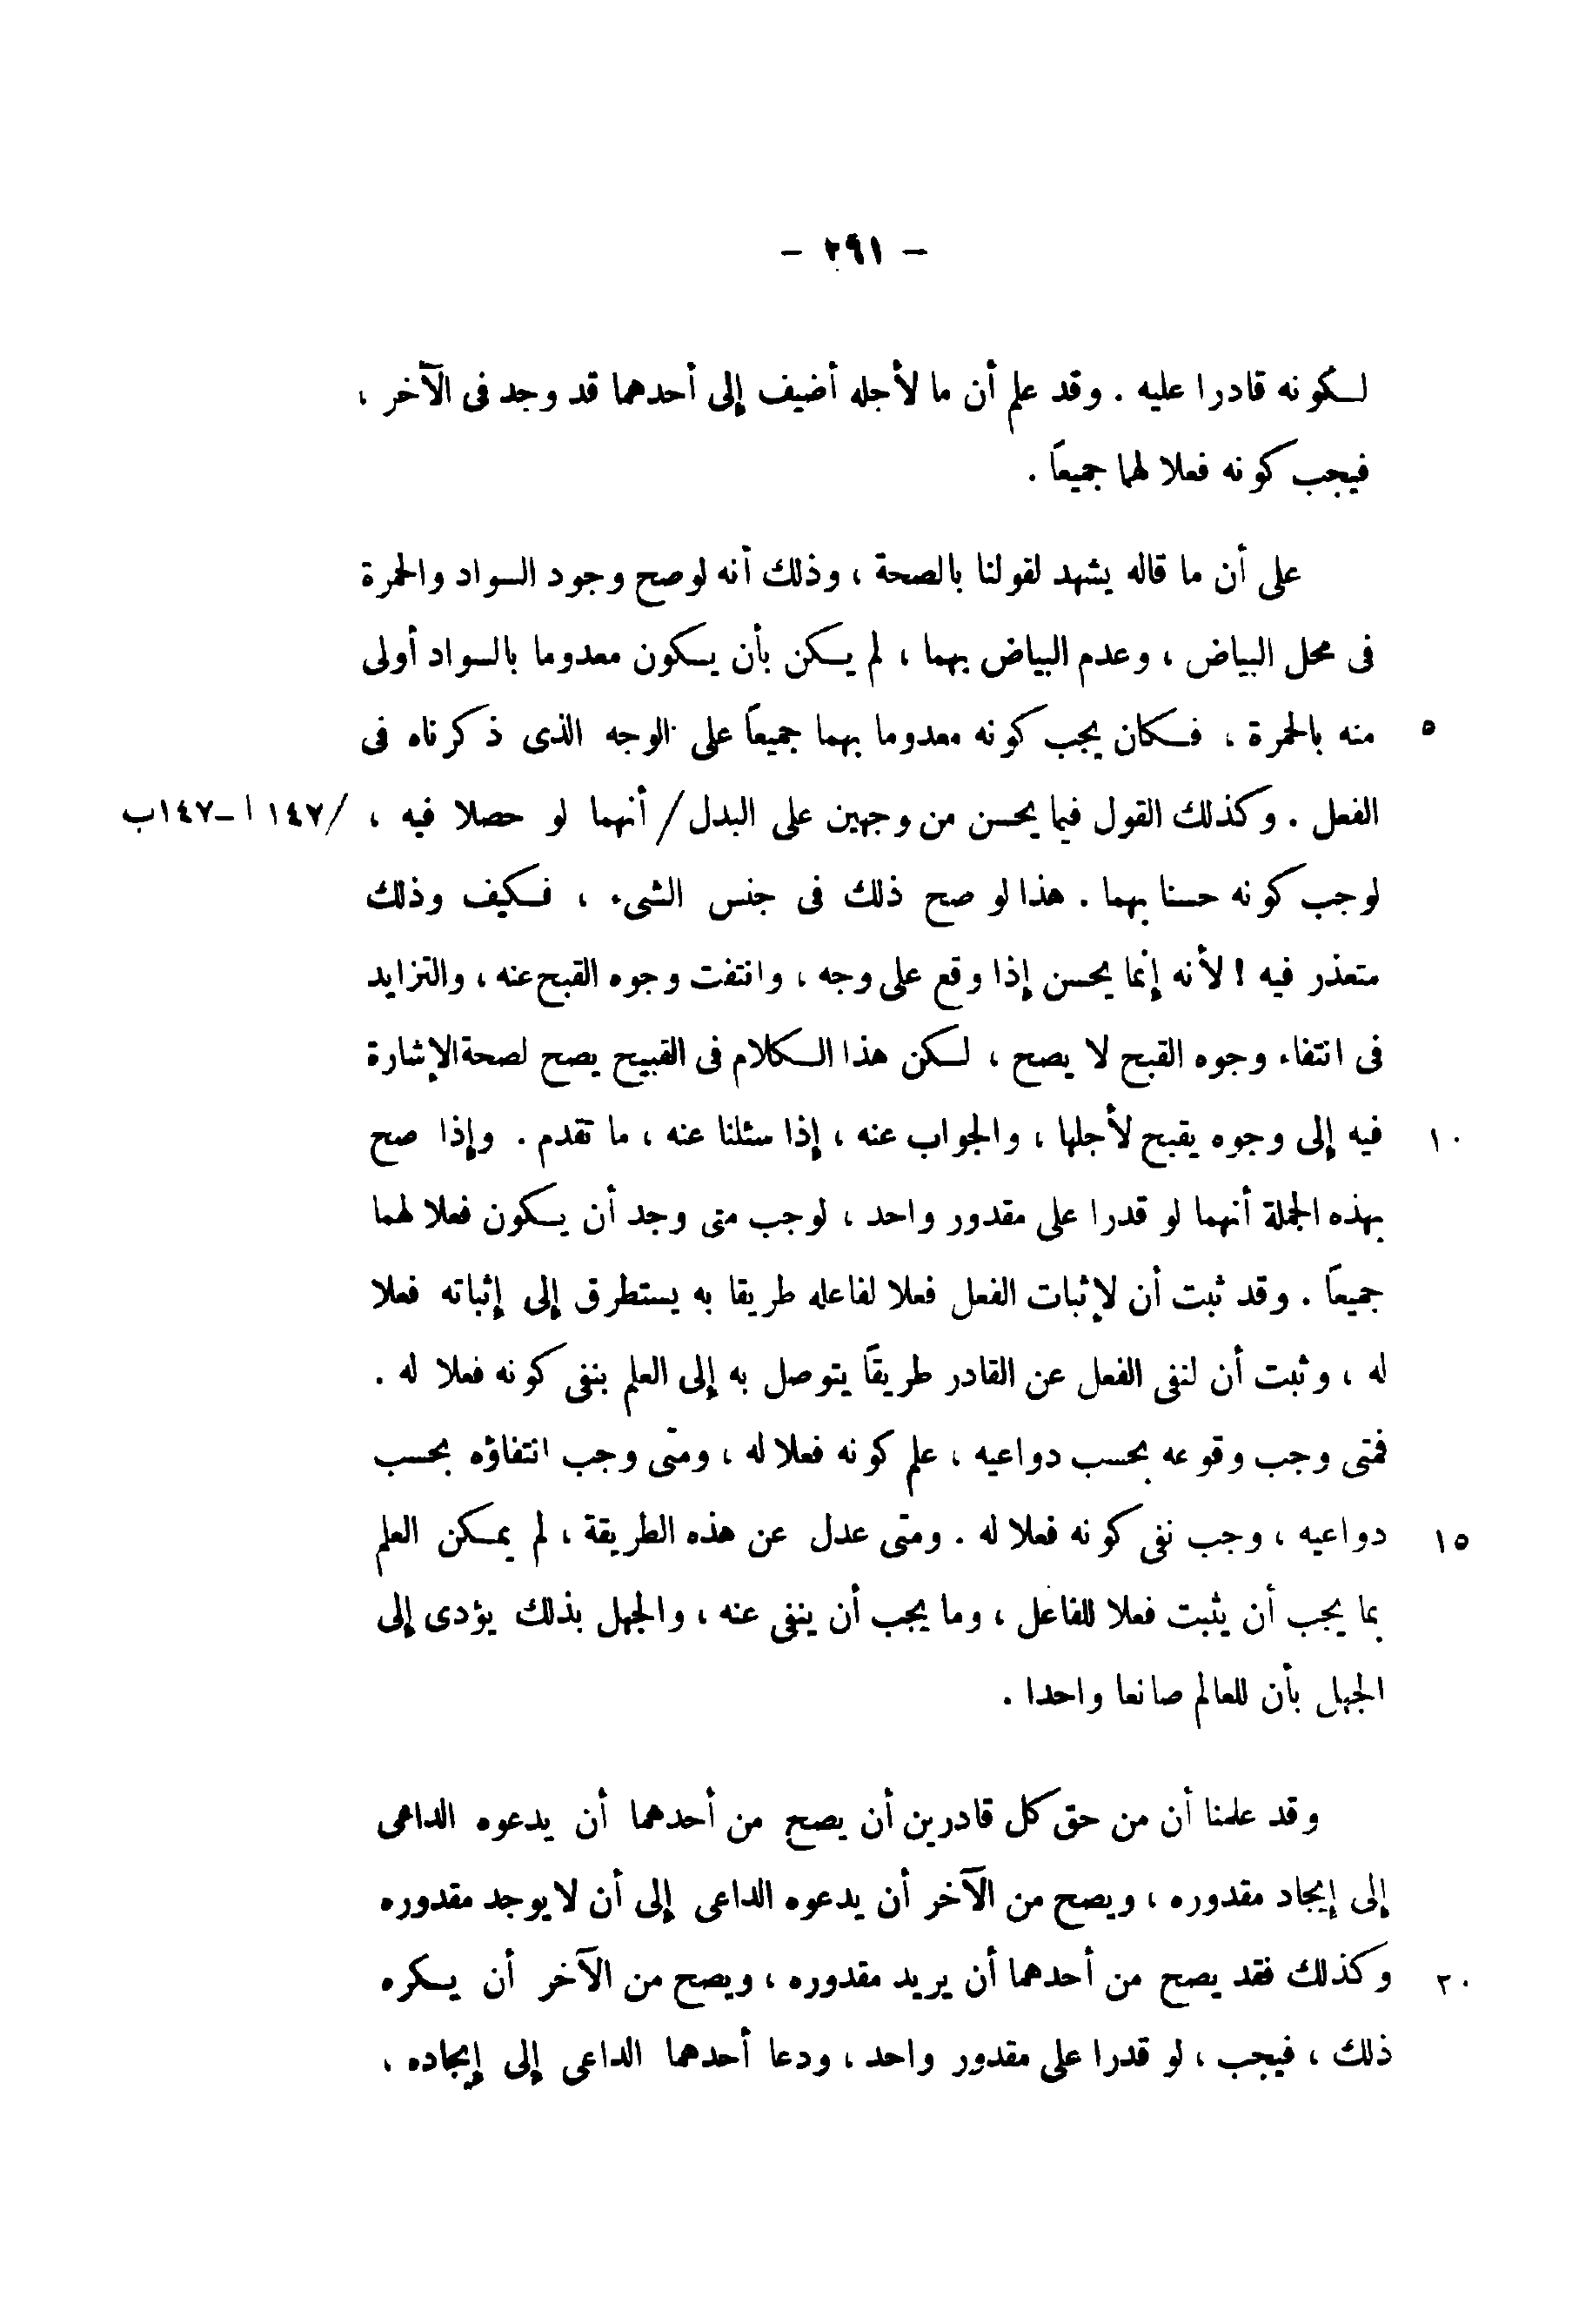 — ٢٩١ —
لكونه قادرا عليه . وقد علم أن ما لأجله أضيف إلى أحدهما قد وجد فى الآخر ،
فيجب كونه فعلا لهما جميعاً .
على أن ما قاله يشهد لقولنا بالصحة ، وذلك أنه لو صح وجود السواد والحمرة
فى محل البياض ، وعدم البياض بهما ، لم يكن بأن يكون معدوما بالسواد أولى
منه بالحمرة ، فكان يجب كونه معدوما بهما جميعاً على الوجه الذى ذكرناه فى ٥
الفعل . وكذلك القول فيما يحسن من وجهين على البدل / أنهما لو حصلا فيه ، /١٤٧ ا -١٤٧ب
لوجب كونه حسنا بهما . هذا لو صح ذلك فى جنس الشىء ، فكيف وذلك
متعذر فيه ! لأنه إنما يحسن إذا وقع على وجه ، وانتفت وجوه القبح عنه ، والتزايد
فى انتفاء وجوه القبح لا يصح ، لكن هذا الكلام فى القبيح يصح لصحة الإشارة
فيه إلى وجوه يقبح لأجلها ، والجواب عنه ، إذا سئلنا عنه ، ما تقدم . وإذا صح ١٠
بهذه الجملة أنهما لو قدرا على مقدور واحد ، لوجب متى وجد أن يكون فعلا لهما
جميعاً . وقد ثبت أن لإثبات الفعل فعلا لفاعله طريقا به يستطرق إلى إثباته فعلا
له ، وثبت أن لنفى الفعل عن القادر طريقاً يتوصل به إلى العلم بنفى كونه فعلا له .
فمتى وجب وقوعه بحسب دواعيه ، علم كونه فعلا له ، ومتى وجب انتفاؤه بحسب
دواعيه ، وجب نفى كونه فعلا له . ومتى عدل عن هذه الطريقة ، لم يمكن العلم ١٥
بما يجب أن يثبت فعلا للفاعل ، وما يجب أن ينفى عنه ، والجهل بذلك يؤدى إلى
الجهل بأن للعالم صانعا واحدا .
وقد علمنا أن من حق كل قادرين أن يصح من أحدهما أن يدعوه الداعى
إلى إيجاد مقدوره ، ويصح من الآخر أن يدعوه الداعى إلى أن لا يوجد مقدوره
وكذلك فقد يصح من أحدهما أن يريد مقدوره ، ويصح من الآخر أن يكره ٢٠
ذلك ، فيجب ، لو قدرا على مقدور واحد ، ودعا أحدهما الداعى إلى إيجاده ،